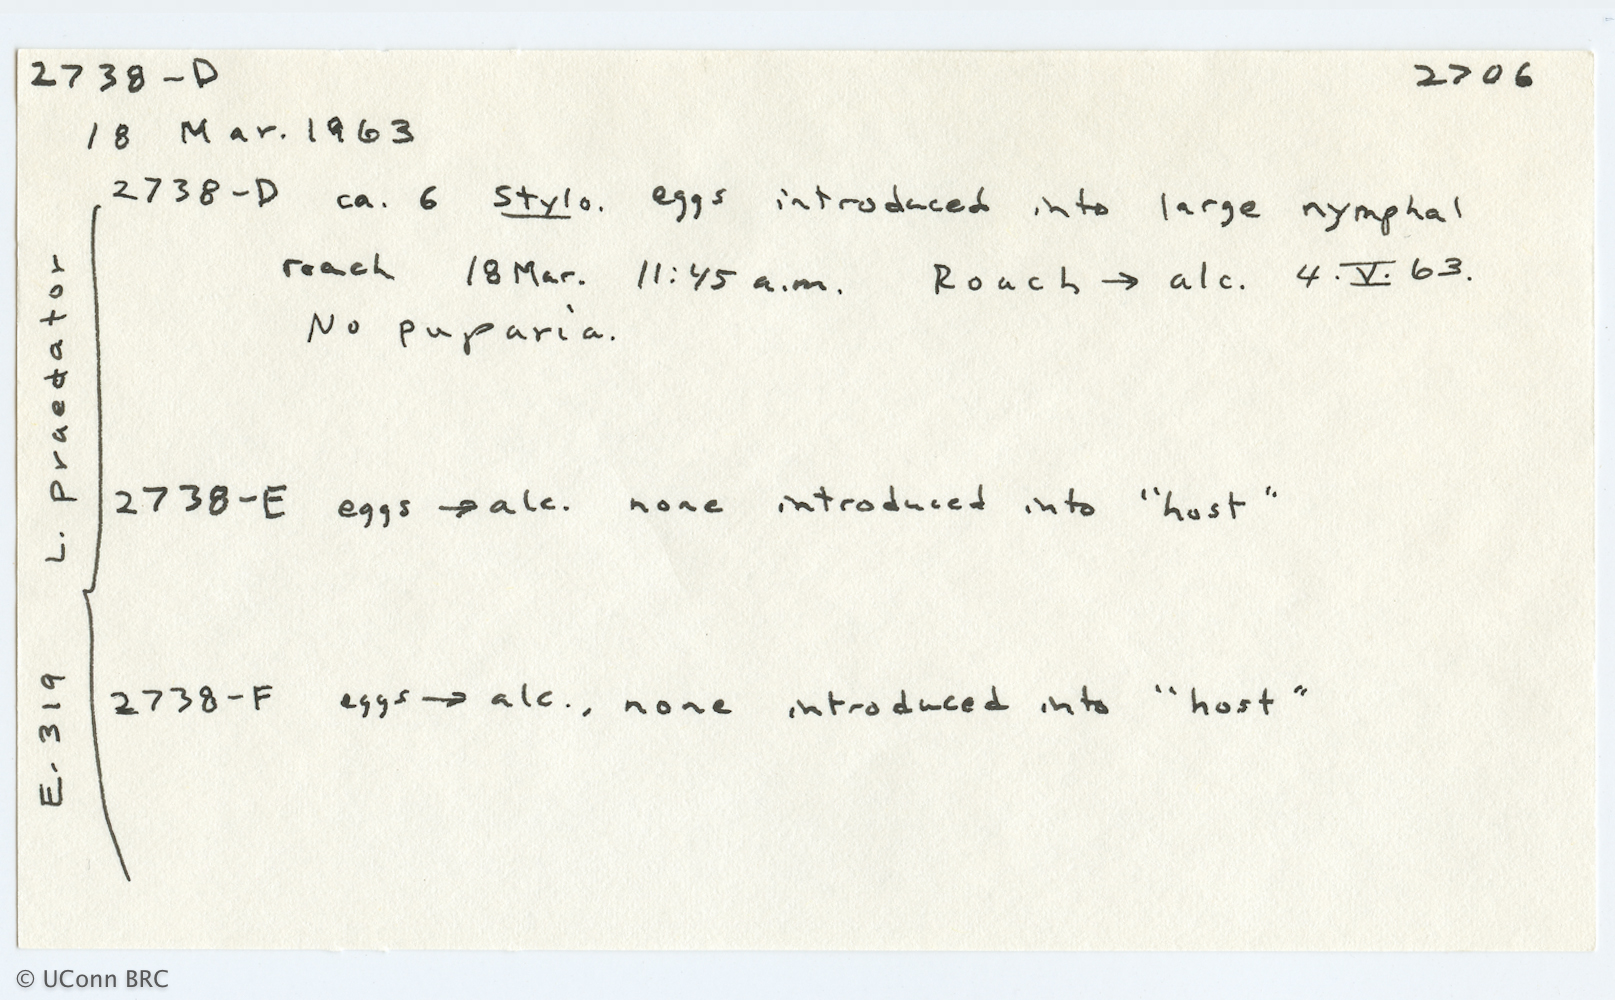 2738-D 2706
18 Mar. 1963
2738-D ca. 6 Stylo. eggs introduced into large nymphal
roach 18 Mar. 11:45 a.m. Roach → alc. 4.V.63.
No puparia.
2738-E eggs → alc. none introduced into "host"
2738-F eggs → alc., none introduced into "host"
E-319 L. Praedator
© UConn BRC